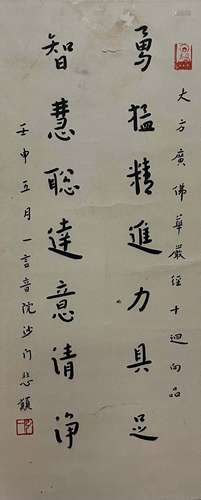 大方廣佛華嚴經十迴向品
勇猛精進力具足
智慧聰達意清淨
壬申五月一言音院沙門悲願